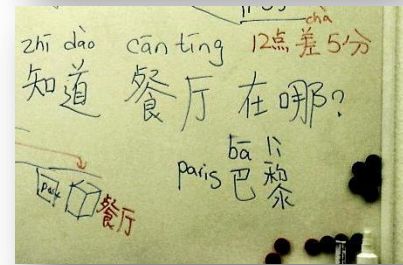 chà
zhī dào cān tīng 12点差5分
知道 餐厅 在哪?
bā lí
paris 巴黎
park 餐厅